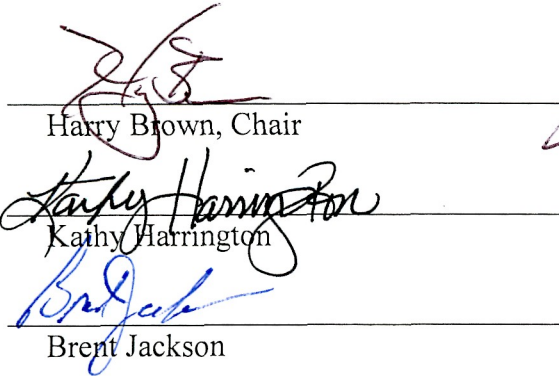 Harry Brown, Chair
Kathy Harrington
Kathy Harrington
Brent Jackson
Brent Jackson